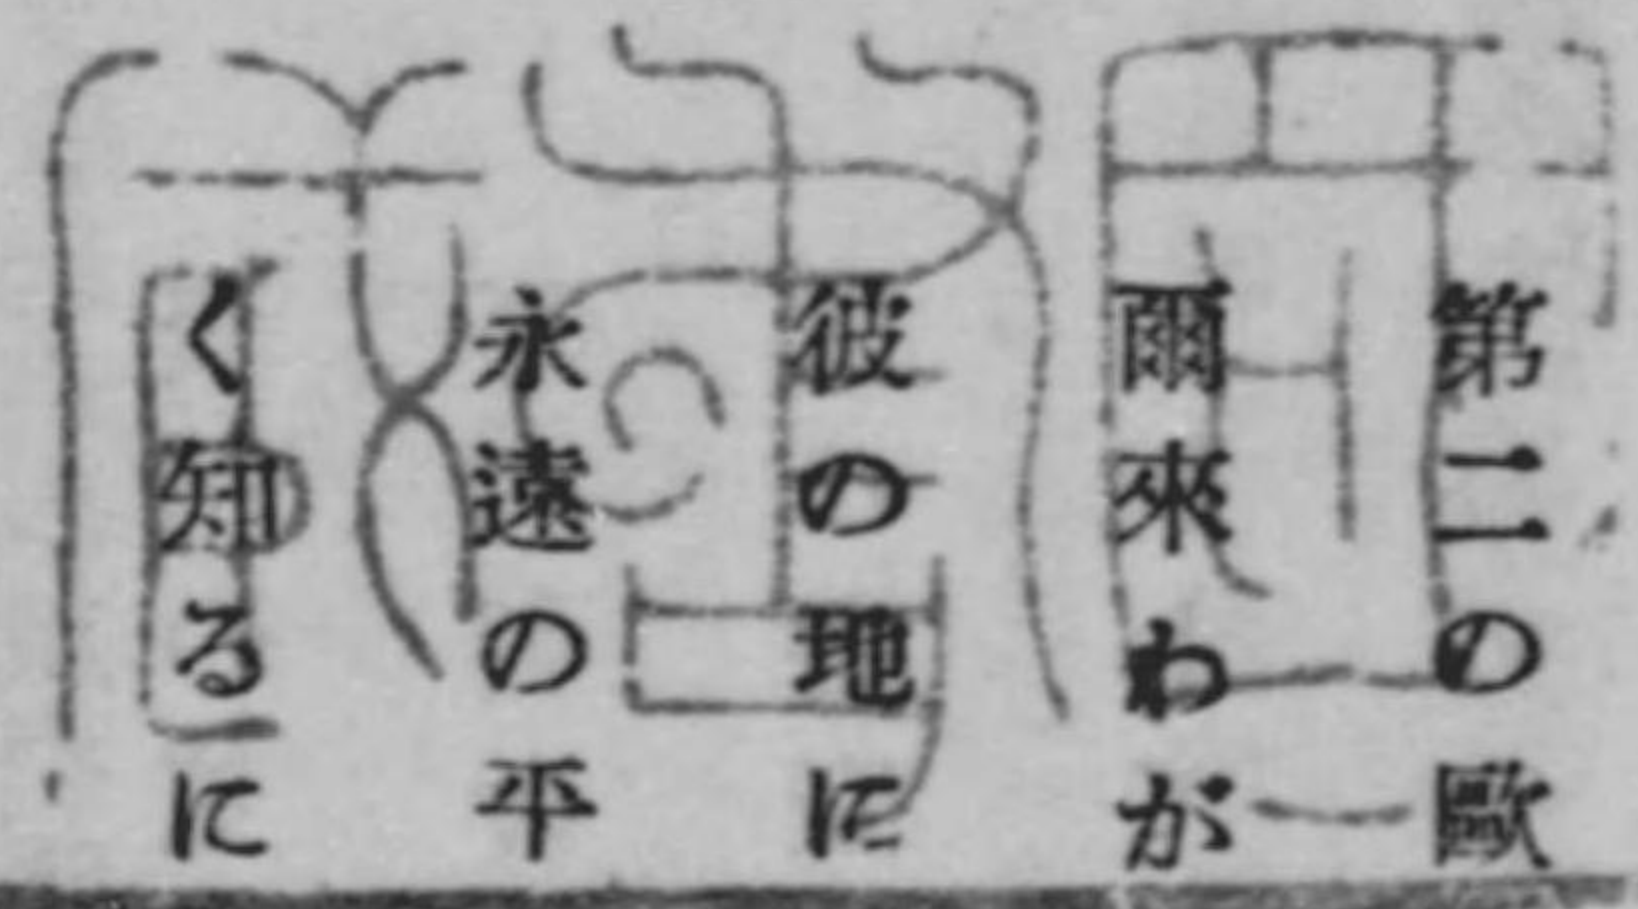 第二の歐
爾來わが
彼の地に
永遠の平
く知るに